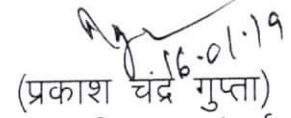 16.01.19
(प्रकाश चंद्र गुप्ता)